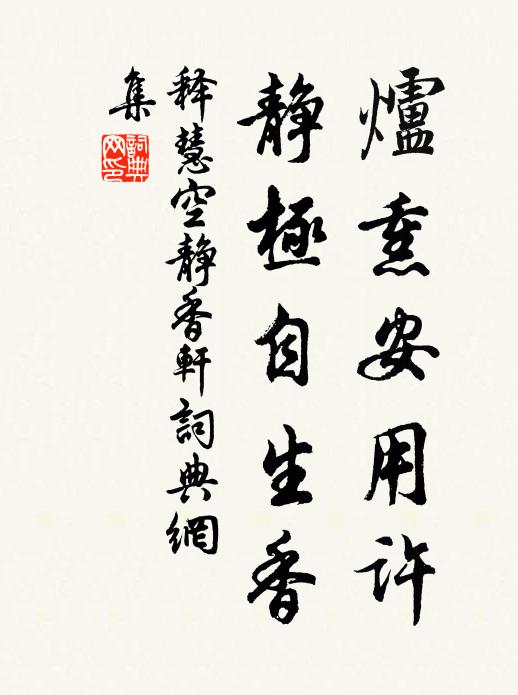 爐熏安用許
静極自生香
释慧空静香軒詞典網
集
詞典
网印